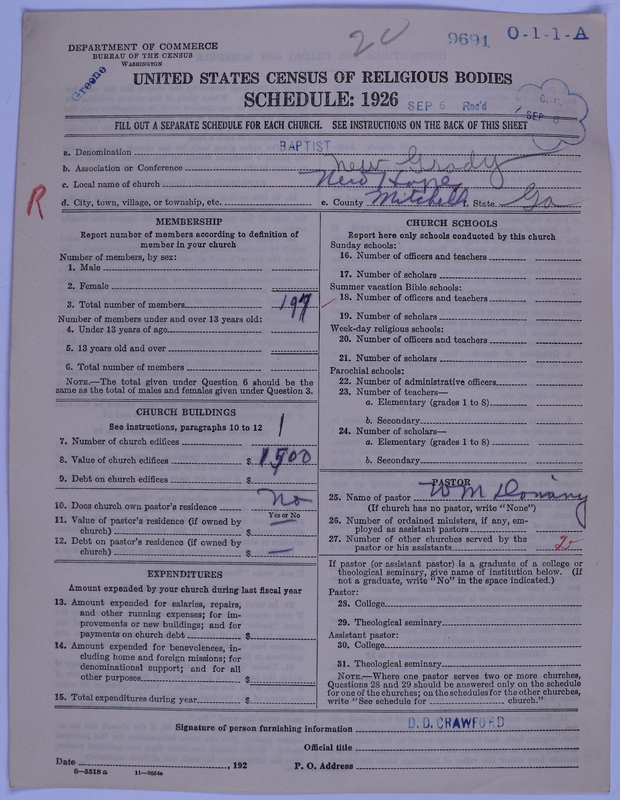 20
9691 O-1-1-A
DEPARTMENT OF COMMERCE
BUREAU OF THE CENSUS
WASHINGTON
Greene
UNITED STATES CENSUS OF RELIGIOUS BODIES
SCHEDULE: 1926
SEP 6 Rec'd
C. C.
SEP 6
FILL OUT A SEPARATE SCHEDULE FOR EACH CHURCH. SEE INSTRUCTIONS ON THE BACK OF THIS SHEET
a. Denomination BAPTIST
b. Association or Conference New Grady
c. Local name of church New Hope
d. City, town, village, or township, etc. e. County Mitchell f. State Ga
R
MEMBERSHIP
Report number of members according to definition of
member in your church
Number of members, by sex:
1. Male
2. Female
3. Total number of members 197
Number of members under and over 13 years old:
4. Under 13 years of age
5. 13 years old and over
6. Total number of members
NOTE.—The total given under Question 6 should be the
same as the total of males and females given under Question 3.
CHURCH BUILDINGS
See instructions, paragraphs 10 to 12
7. Number of church edifices 1
8. Value of church edifices $ 1500
9. Debt on church edifices $
10. Does church own pastor's residence No
Yes or No
11. Value of pastor's residence (if owned by
church) $ —
12. Debt on pastor's residence (if owned by
church) $ —
EXPENDITURES
Amount expended by your church during last fiscal year
13. Amount expended for salaries, repairs,
and other running expenses; for im-
provements or new buildings; and for
payments on church debt $
14. Amount expended for benevolences, in-
cluding home and foreign missions; for
denominational support; and for all
other purposes $
15. Total expenditures during year $
CHURCH SCHOOLS
Report here only schools conducted by this church
Sunday schools:
16. Number of officers and teachers
17. Number of scholars
Summer vacation Bible schools:
18. Number of officers and teachers
19. Number of scholars
Week-day religious schools:
20. Number of officers and teachers
21. Number of scholars
Parochial schools:
22. Number of administrative officers
23. Number of teachers—
a. Elementary (grades 1 to 8)
b. Secondary
24. Number of scholars—
a. Elementary (grades 1 to 8)
b. Secondary
PASTOR
25. Name of pastor W M
(If church has no pastor, write "None")
26. Number of ordained ministers, if any, em-
ployed as assistant pastors
27. Number of other churches served by the
pastor or his assistants
If pastor (or assistant pastor) is a graduate of a college or
theological seminary, give name of institution below. (If
not a graduate, write "No" in the space indicated.)
Pastor:
28. College
29. Theological seminary
Assistant pastor:
30. College
31. Theological seminary
NOTE.—Where one pastor serves two or more churches,
Questions 28 and 29 should be answered only on the schedule
for one of the churches; on the schedules for the other churches,
write "See schedule for church."
Signature of person furnishing information D. D. CRAWFORD
Official title
Date , 192 P. O. Address
8—5518 a 11—9054a